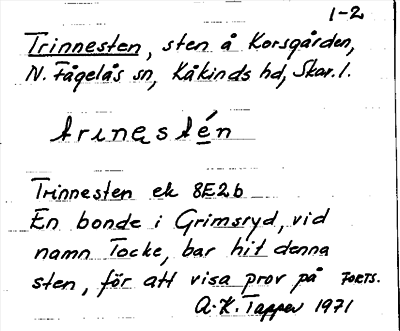 1-2
Trinnesten, sten å Korsgården,
N. Fågelås sn, Kåkinds hd, Skar. l.
trinestén
Trinnesten ek 8E2b
En bonde i Grimsryd, vid
namn Tocke, bar hit denna
sten, för att visa prov på FORTS.
A.K. Tapper 1971